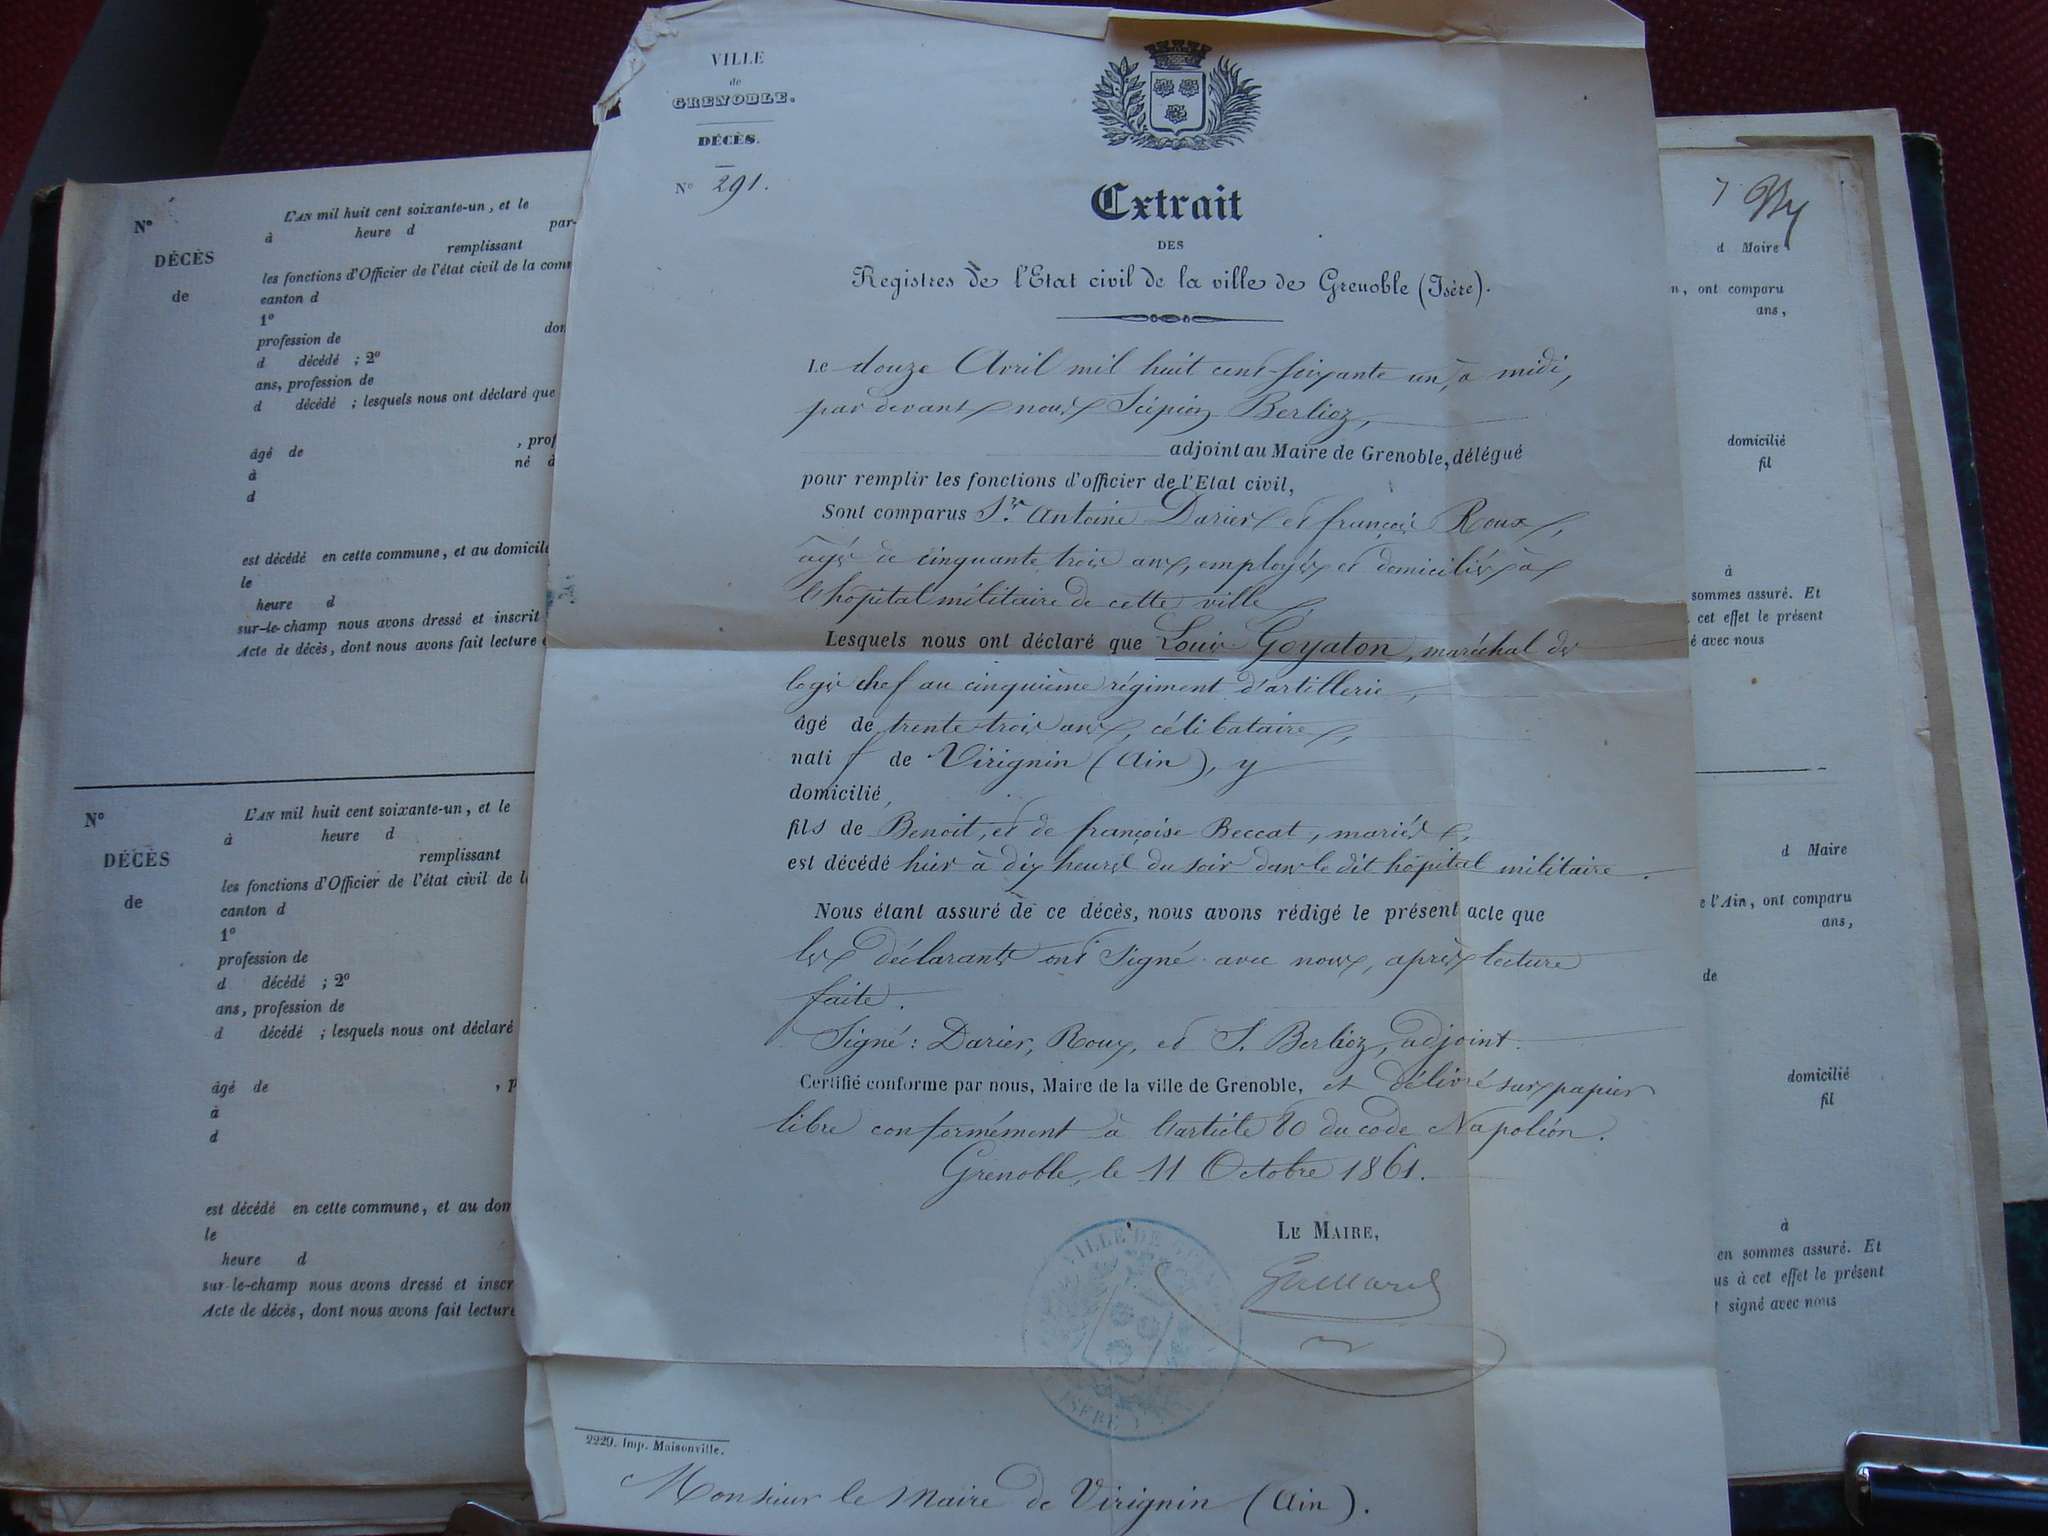 VILLE
de
GRENOBLE.
DÉCÈS.
N° 291.
Extrait
DES
Registres de l'Etat civil de la ville de Grenoble (Isère).
Le douze Avril mil huit cent soixante un, à midi,
par devant nous Scipion Berlioz,
adjoint au Maire de Grenoble, délégué
pour remplir les fonctions d'officier de l'Etat civil,
Sont comparus Srs Antoine Darier et françois Roux,
âgés de cinquante trois ans, employés et domiciliés à
l'hôpital militaire de cette ville,
Lesquels nous ont déclaré que Louis Goyaton, maréchal des
logis chef au cinquième régiment d'artillerie,
âgé de trente-trois ans, célibataire,
natif de Virignin (Ain), y
domicilié,
fils de Benoit, et de françoise Beccat, mariés,
est décédé hier à dix heures du soir dans le dit hôpital militaire.
Nous étant assuré de ce décès, nous avons rédigé le présent acte que
les déclarants ont signé avec nous, après lecture
faite.
Signé: Darier, Roux, et S. Berlioz, adjoint.
Certifié conforme par nous, Maire de la ville de Grenoble, et délivré sur papier
libre conformément à l'article 80 du code Napoléon.
Grenoble, le 11 Octobre 1861.
LE MAIRE,
Gaillard
VILLE DE
ISÈRE
2229. Imp. Maisonville.
Monsieur le Maire de Virignin (Ain).
N°
DÉCÈS
de
L'AN mil huit cent soixante-un, et le
à heure d par-
remplissant
les fonctions d'Officier de l'état civil de la com
canton d
1°
profession de dom
d décédé ; 2°
ans, profession de
d décédé ; lesquels nous ont déclaré que
, prof
âgé de né à
à
d
est décédé en cette commune, et au domicile
le
heure d
sur-le-champ nous avons dressé et inscrit
Acte de décès, dont nous avons fait lecture
N°
DÉCÈS
de
L'AN mil huit cent soixante-un, et le
à heure d
remplissant
les fonctions d'Officier de l'état civil de l
canton d
1°
profession de
d décédé ; 2°
ans, profession de
d décédé ; lesquels nous ont déclaré
âgé de , p
à
d
est décédé en cette commune, et au dom
le
heure d
sur-le-champ nous avons dressé et inscr
Acte de décès, dont nous avons fait lecture
7
d Maire
n, ont comparu
ans,
domicilié
fil
à
sommes assuré. Et
cet effet le présent
é avec nous
d Maire
e l'Ain, ont comparu
ans,
de
domicilié
fil
à
en sommes assuré. Et
us à cet effet le présent
t signé avec nous